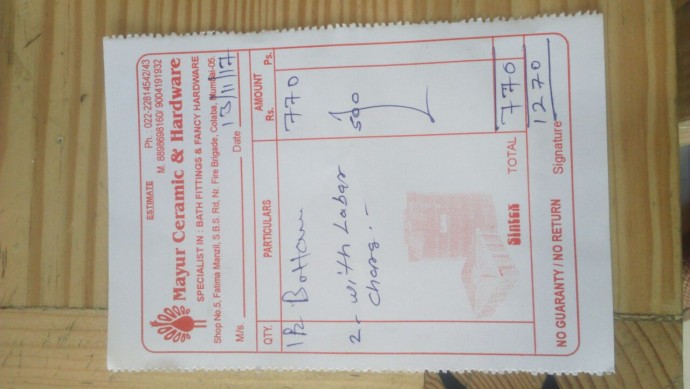 ESTIMATE
Ph. : 022-22814542/43
M. 8898698160/ 9004191932
Mayur Ceramic & Hardware
SPECIALIST IN : BATH FITTINGS & FANCY HARDWARE
Shop No.5, Fatima Manzil, S.B.S. Rd, Nr. Fire Brigade, Colaba, Mumbai-05.
M/s. Date 13/11/17
QTY. PARTICULARS AMOUNT
Rs. Ps.
1 Pz Bottam 770
2 - with Labar 500
Charg. -
Sintex
TOTAL 770
1270
NO GUARANTY / NO RETURN Signature